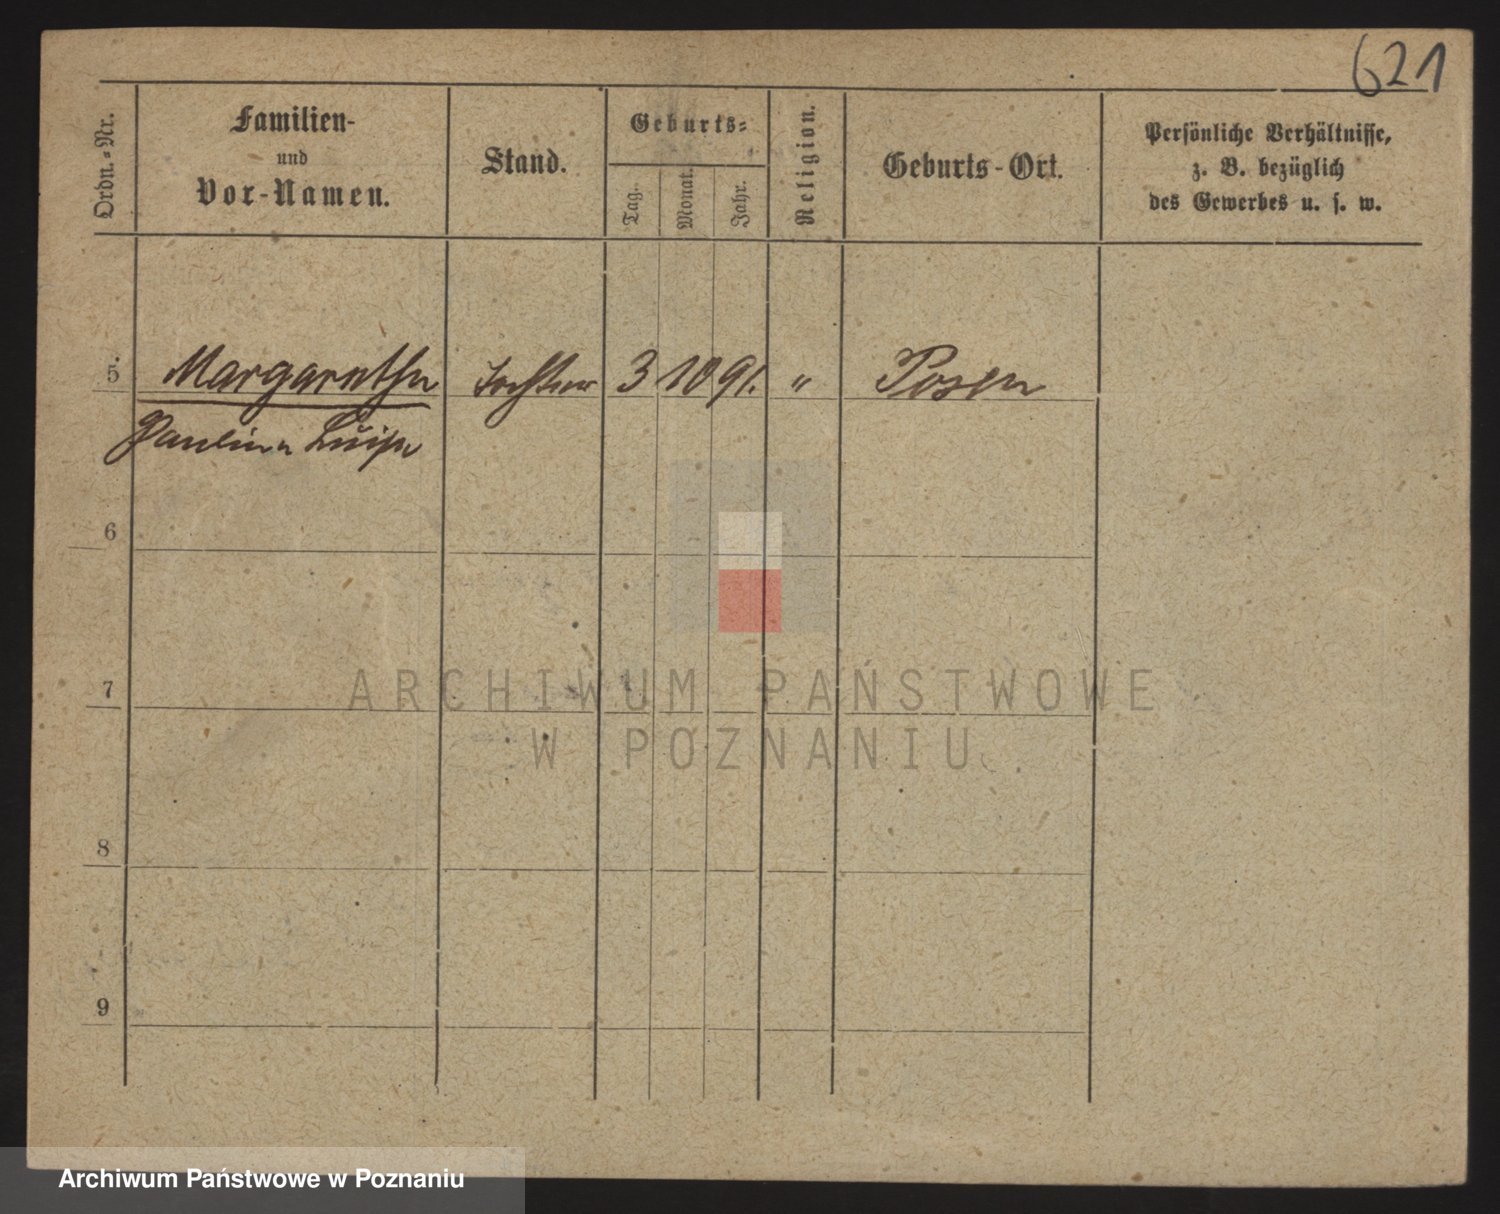 621
Ordn.-Nr.
Familien-
und
Vor-Namen.
Stand.
Geburts-
Tag.
Monat.
Jahr.
Religion.
Geburts-Ort.
Persönliche Verhältnisse,
z. B. bezüglich
des Gewerbes u. s. w.
5. Margarethe Tochter 3 10 91. " Posen
Pauline Luise
6
7
8
9
ARCHIWUM PAŃSTWOWE
W POZNANIU
Archiwum Państwowe w Poznaniu